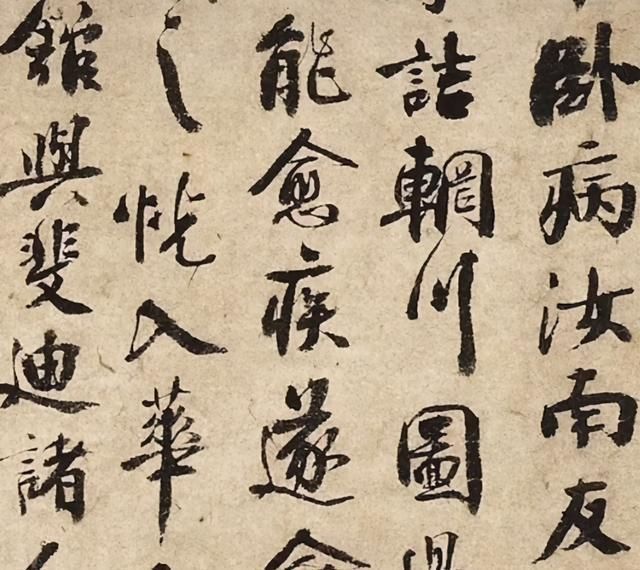 卧病汝南友
詰輞川圖
能愈疾遂
之恍入華
館與斐迪諸